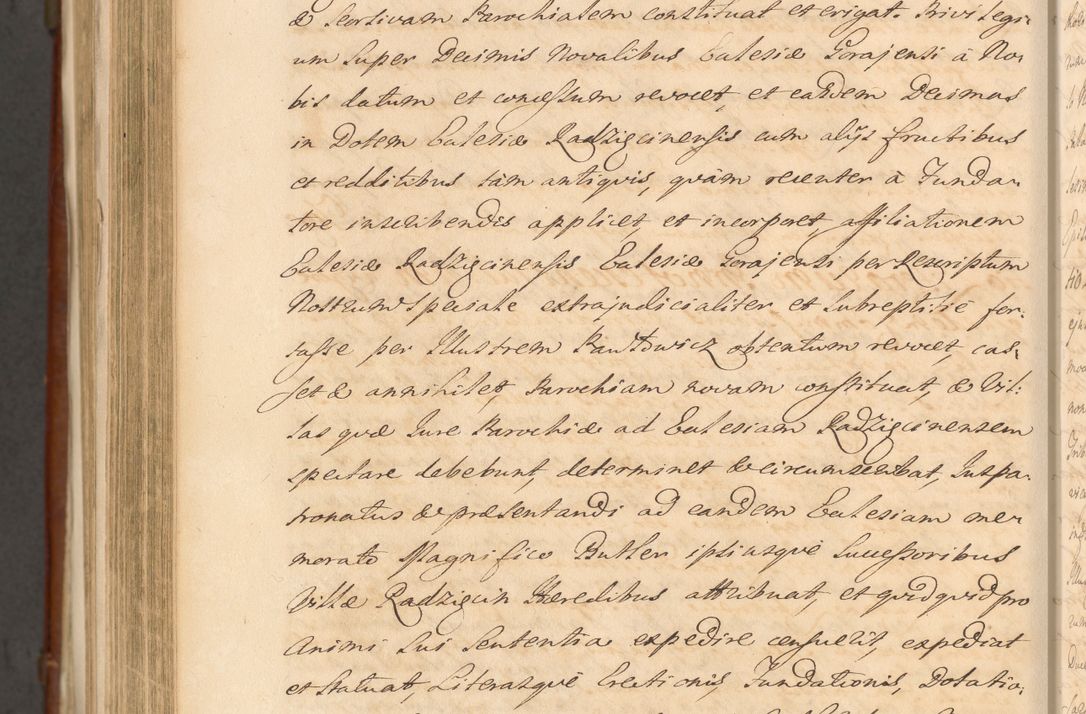 & Seorsivam Parochialem constituat et erigat. Privilegi-
um super Decimis Novalibus Eclesiæ Gorajensi à No-
bis datum et concessum revocet, et easdem Decimas
in Dotem Eclesiæ Radzięcinensis cum alijs fructibus
et redditibus tàm antiquis, quàm recenter à Funda-
tore inscribendis applicet, et incorporet, affiliationem
Eclesiæ Radzięcinensis Eclesiæ Gorajensi per Rescriptum
Nostrum speciale extrajudicialiter et subreptitiè for-
tasse per Illustrem obtentum revocet, cas-
set & annihilet, Parochiam novam constituat, & Vil-
las quæ Jure Parochiæ ad Eclesiam Radzięcinensem
spectare debebunt, determinet & circumscribat, Juspa-
tronatus & præsentandi ad eandem Eclesiam me-
morato Magnifico Butler ipsiusque Successoribus
Villæ Radzięcin Hæredibus attribuat, et quidquid pro
Animi sui Sententia expedire censuerit, expediat
et statuat, Literasque Erectionis, Fundationis, Dotatio-